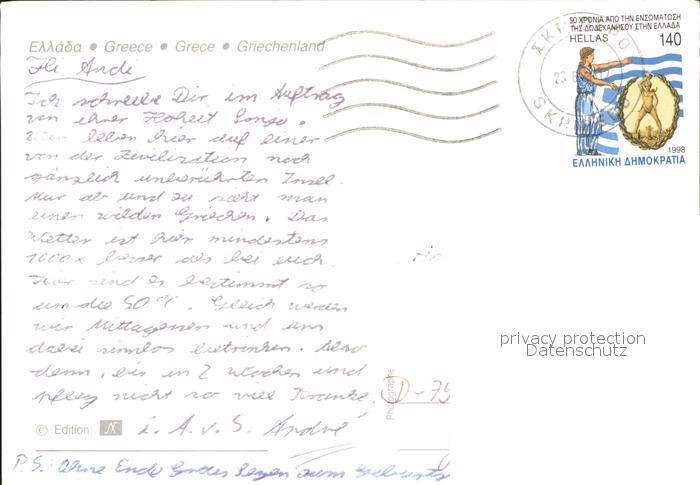 Ελλάδα • Greece • Grece • Griechenland
Hi Andi
Ich schreibe Dir im Auftrag
von ihrer Hoheit
Wir leben hier auf einer
von der Zivilisation noch
gänzlich unberührten Insel.
Nur ab und zu sieht man
einen wilden Griechen. Das
Wetter ist hier mindestens
1000x besser als bei euch.
Hier sind es bestimmt so
um die 50°C. Gleich werden
wir Mittagessen und uns
dabei sinnlos betrinken. Also
dann, bis in 2 Wochen und
pfleg nicht so viel Kranke.
© Edition: N i. A. v. S. André
P.S.: Ohne Ende Gottes Segen zum Geburts
50 ΧΡΟΝΙΑ ΑΠΟ ΤΗΝ ΕΝΣΩΜΑΤΩΣΗ
ΤΗΣ ΔΩΔΕΚΑΝΗΣΟΥ ΣΤΗΝ ΕΛΛΑΔΑ
HELLAS 140
1998
ΕΛΛΗΝΙΚΗ ΔΗΜΟΚΡΑΤΙΑ
privacy protection
Datenschutz
Photographe
D-79